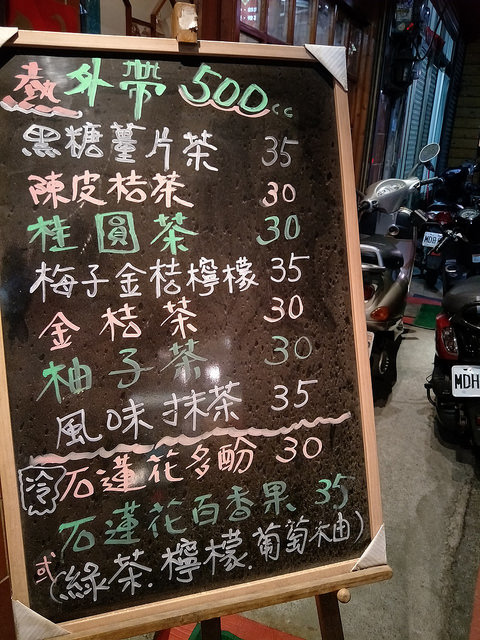 熱 外帶 500cc
黑糖薑片茶 35
陳皮桔茶 30
桂圓茶 30
梅子金桔檸檬 35
金桔茶 30
柚子茶 30
風味抹茶 35
冷 石蓮花多酚 30
石蓮花百香果 35
或(綠茶.檸檬.葡萄柚)
MDH